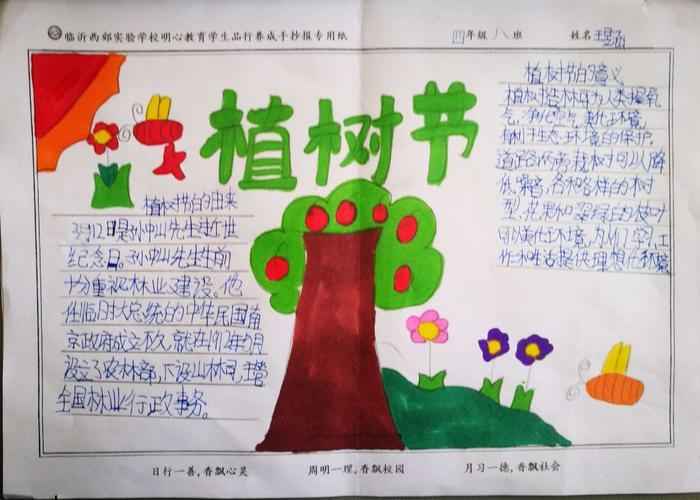 临沂西郊实验学校明心教育学生品行养成手抄报专用纸
四年级八班
姓名
植树节
植树节的由来
3月12日是孙中山先生逝世
纪念日。孙中山先生生前
十分重视林业建设。他
任临时大总统的中华民国南
京政府成立不久,就在1912年5月
设立了农林部,下设山林司,主管
全国林业行政事务。
植树节的意义
植树造林可为人类提氧
气,净化空气,美化环境,
有利于生态环境的保护,
道路两旁栽树可以降
低噪音,各种各样的树
型,花果和翠绿的枝叶
可以美化环境,为人们学习,工
作和生活提供理想化环境
日行一善,香飘心灵
周明一理,香飘校园
月习一德,香飘社会